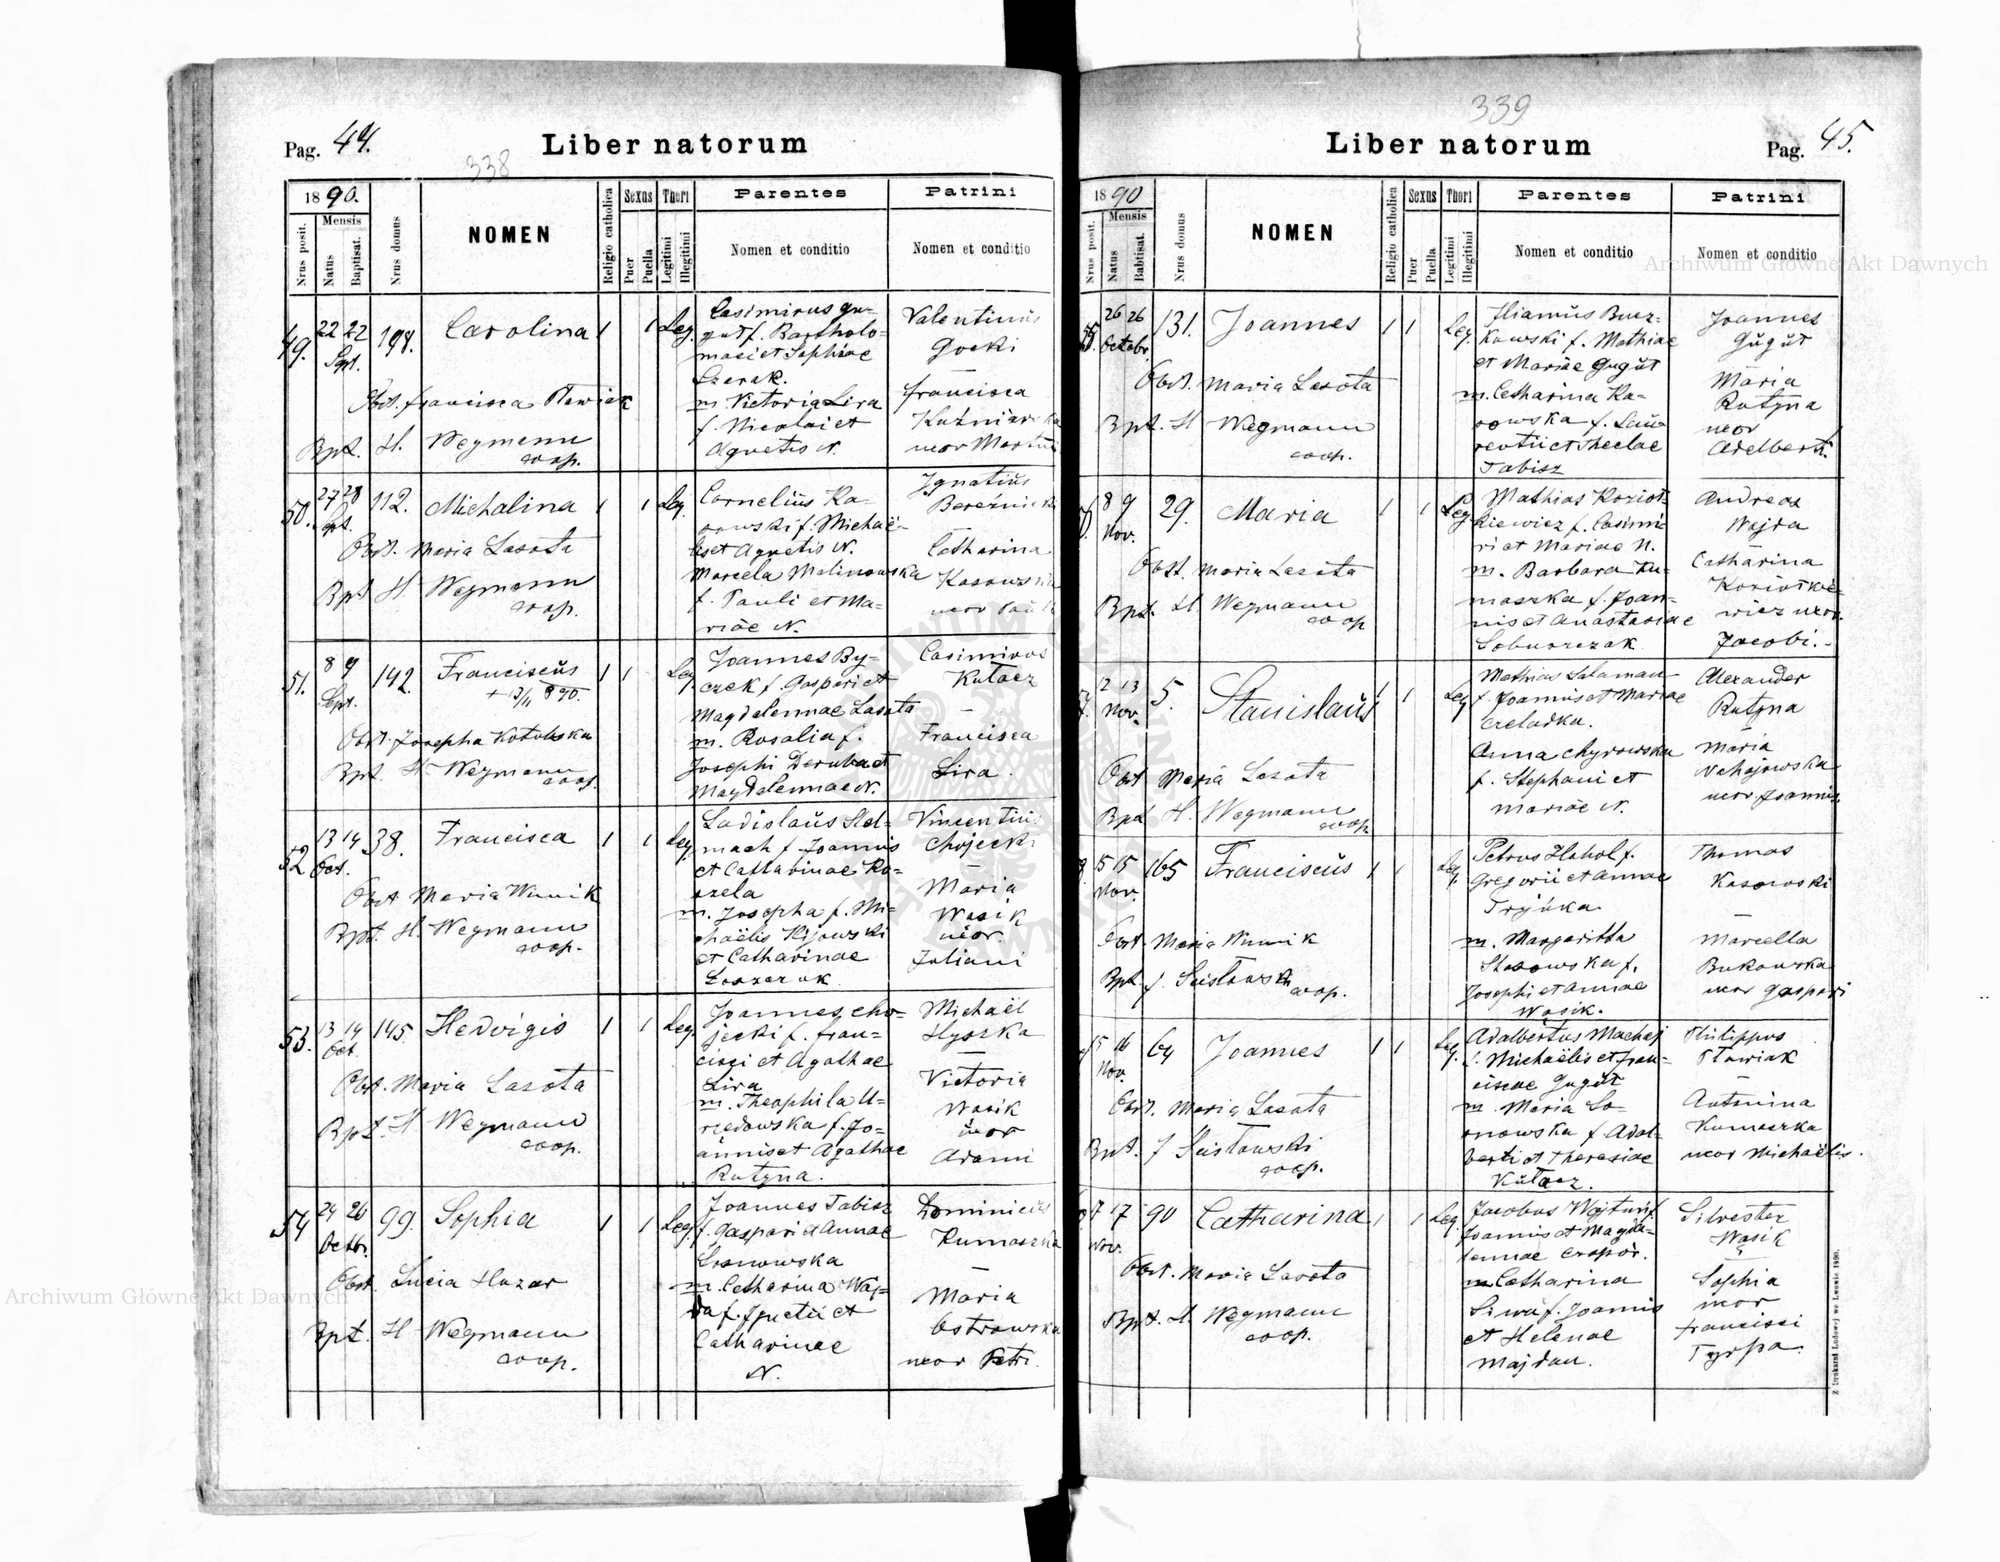 Pag. 44.
Liber natorum
338
1890.
Nrus posit.
Mensis
Natus
Baptisat.
Nrus domus
NOMEN
Religio catholica
Sexus
Puer
Puella
Thori
Legitimi
Illegitimi
Parentes
Nomen et conditio
Patrini
Nomen et conditio
49. 22 22 Sept. 198. Carolina 1 1 Leg.
Obst. Francisca
Bpt. H. Wegmann
coop.
Casimirus Gu-
gut f. Bartholo-
maei et Sophiae
Szerak.
m. Victoria Lira
f. Nicolai et
Agnetis N.
Valentinus
Gocki
francisca
Kuźniarska
uxor Martini
50. 27 28 Spt. 112. Michalina 1 1 Leg.
Obst. Maria Lasota
Bpt H. Wegmann
coop.
Cornelius Ka-
sowski f. Michaë-
lis et Agnetis N.
Marcela Malinowska
f. Pauli et Ma-
riae N.
Ignatius
Bereżnicki
Catharina
Kasowska
uxor
51. 8 9 Sept. 142. Franciscus 1 1 Leg.
+ 13/11 890.
Obst. Josepha Kotulska
Bpt. H. Wegmann
coop.
Joannes By-
czek f. Gaspari et
Magdalennae Lasota
m. Rosalia f.
Josephi Deruba et
Magdalennae N.
Casimirus
Kulacz
–
Francisca
Lira.
52 13 14 Oct. 38. Francisca 1 1 Leg.
Obst. Maria Wumik
Bpt. H. Wegmann
coop.
Ladislaus Stel-
mach f. Joannis
et Catharinae Ko-
szela
m. Josepha f. Mi-
chaëlis Kijowski
et Catharinae
Vincentius
Chojecki
–
Maria
Wasik
uxor
Juliani
53. 13 14 Oct. 145. Hedvigis 1 1 Leg.
Obst. Maria Lasota
Bpt. H. Wegmann
coop.
Joannes Cho-
jecki f. Fran-
cisci et Agathae
Lira
m. Theophila U-
rzędowska f. Jo-
annis et Agathae
Rutyna.
Michaël
Hyszka
–
Victoria
Wasik
uxor
Adami
54 24 26 Octbr. 99. Sophia 1 1 Leg.
Obst. Lucia Huzar
Bpt. H Wegmann
coop.
Joannes Tabisz
f. Gaspari et Annae
m. Catharina Waj-
da f. Ignatii et
Catharinae
N.
Dominicus
Kumaszka
–
Maria
Ostrowska
uxor Petri.
339
Liber natorum
Pag. 45.
1890
Nrus posit.
Mensis
Natus
Babtisat.
Nrus domus
NOMEN
Religio catholica
Sexus
Puer
Puella
Thori
Legitimi
Illegitimi
Parentes
Nomen et conditio
Patrini
Nomen et conditio
26 26 Octobr. 131. Joannes 1 1 Leg.
Obst. Maria Lasota
Bpt. H Wegmann
coop.
kowski f. Mathiae
et Mariae Gugut
m. Catharina Ka-
sowska f. Lau-
rentii et Theclae
Tabisz
Joannes
Gugut
Maria
Rutyna
uxor
Adelberti
8 9 Nov. 29. Maria 1 1 Leg
Obst. Maria Lasota
Bpt. H. Wegmann
coop
Mathias Kozioł-
kiewicz f. Casimi-
ri et Mariae N.
m. Barbara Ku-
maszka f. Joan-
nis et Anastasiae
Andreas
Wajda
Catharina
Koziołkie-
wicz uxor
Jacobi. -
12 13 Nov. 5. Stanislaus 1 1 Leg
Obst Maria Lasota
Bpt H. Wegmann
coop.
Mathias Salaman
f. Joannis et Mariae
Czeladka.
Anna Chyrowska
f. Stephani et
Mariae N.
Alexander
Rutyna
Maria
Nahajowska
uxor Joannis.
15 15 Nov. 165 Franciscus 1 1 Leg.
Obst Maria Wumik
Bpt. J. Suisłowski
coop.
Petrus Hahol f.
Gregorii et Annae
Tryjuka
m. Margaritta
Stasowska f.
Josephi et Annae
Wasik.
Thomas
Kasowski
–
Marcella
Bukowska
uxor Gaspari
15 16 Nov. 64 Joannes 1 1 Leg.
Obst. Maria Lasota
Bpt. J Suisłowski
coop.
Adalbertus Machaj
f. Michaëlis et Fran-
ciscae Gugut
m. Maria So-
snowska f. Adal-
berti et Theresiae
Kulacz.
Philippus
Pławiak
–
Antonina
Kumaszka
uxor Michaëlis.
17 17 Nov. 90 Catharina 1 1 Leg.
Obst. Maria Lasota
Bpt. H Wegmann
coop.
Jacobus Wajtuń f.
Joannis et Magda-
lennae
m. Catharina
Siwa f. Joannis
et Helenae
Majdan.
Silvester
Wasik
&
Sophia
uxor
Francisci
Tyrpa.
Z Drukarni Ludowej we Lwowie 1890.
Archiwum Główne Akt Dawnych
Archiwum Główne Akt Dawnych